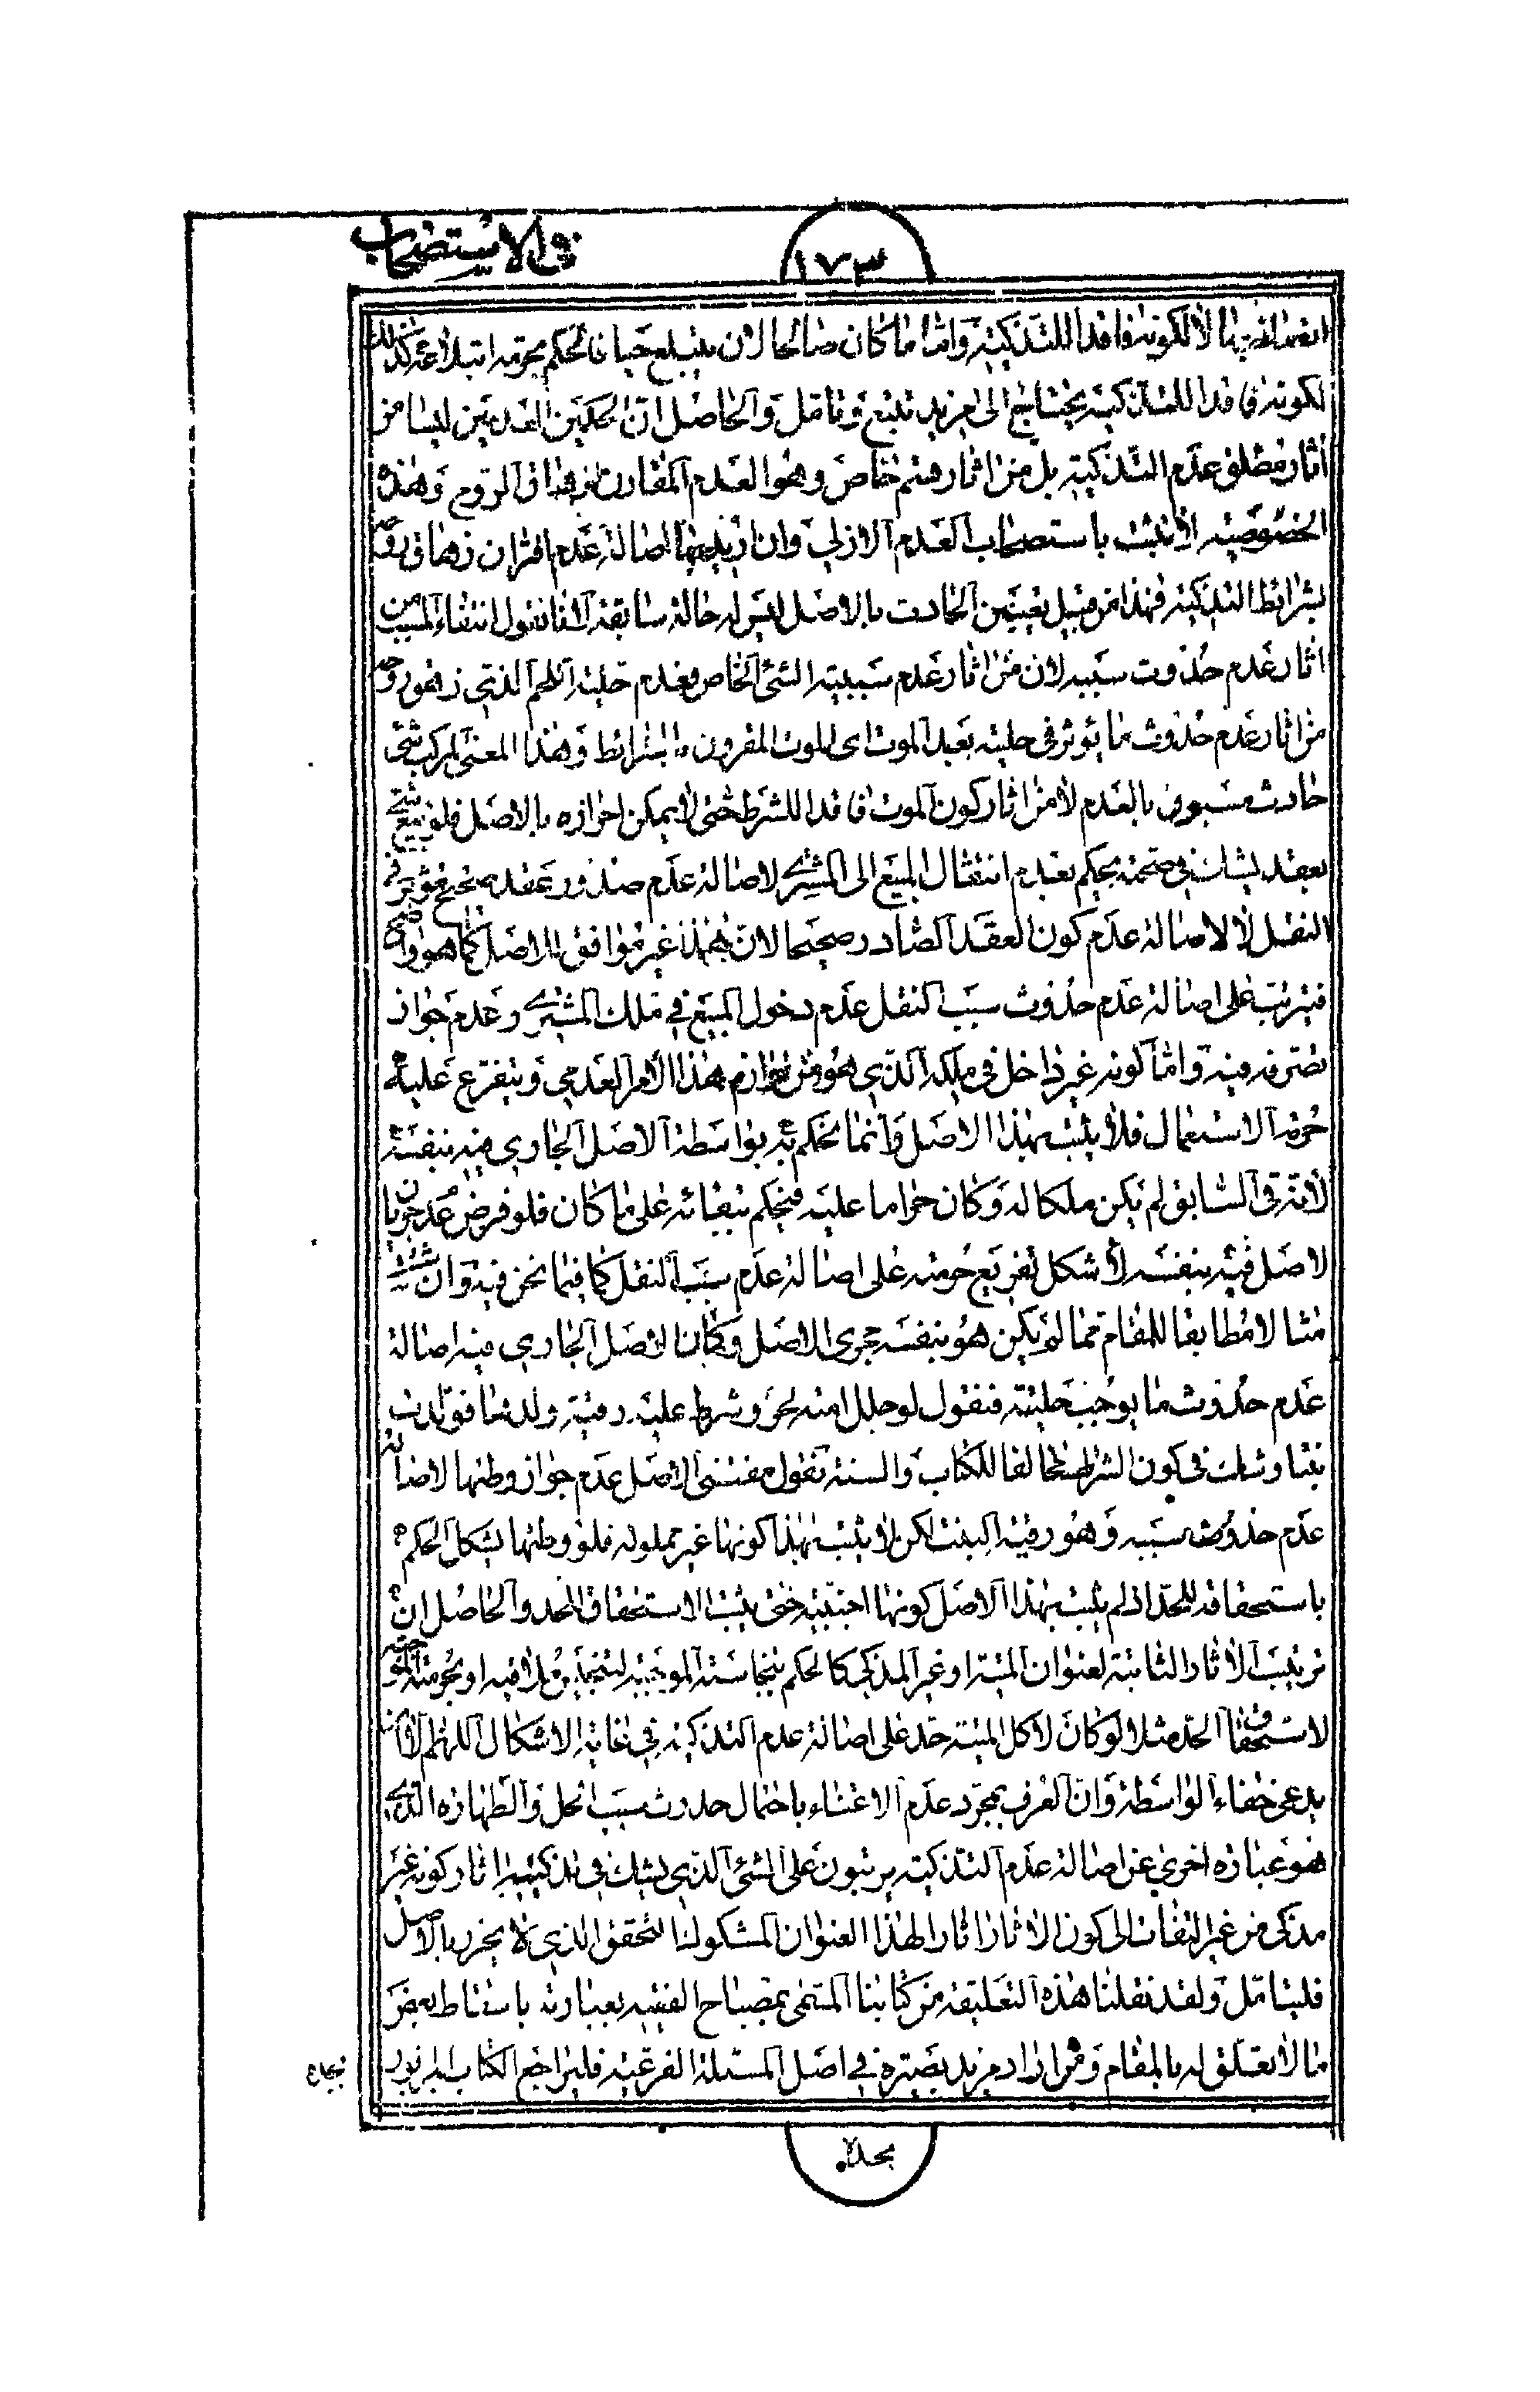 في الاستصحاب
١٧٣
لا لكونه فاقدا للتذكية واما ما كان صالحا لان يبتلع حيا فالحكم بحرمة ابتلاعه كذلك
لكونه فاقدا للتذكية يحتاج الى مزيد تتبع وتامل والحاصل ان الحكمين العدميين ليسا من
اثار مطلق عدم التذكية بل من اثار قسم خاص وهو العدم المقارن لزهاق الروح وهذه
الخصوصية لا تثبت باستصحاب العدم الازلي وان اريد اصالة عدم اقتران زهاق روحه
بشرائط التذكية فهذا من قبيل تعيين الحادث بالاصل ليس له حالة سابقة لانا نقول انتفاء المسبب من
اثار عدم حدوث سببه لان من اثار عدم سببية الشئ الخاص فعدم حلية اللحم الذي زهق روحه
من اثار عدم حدوث ما يؤثر في حليته بعد الموت اى الموت المقرون بالشرائط وهذا المعنى المركب شئ
حادث مسبوق بالعدم لا من اثار كون الموت فاقدا للشرط حتى لا يمكن احرازه بالاصل فلو بيع شئ
بعقد يشك في صحته يحكم بعدم انتقال المبيع الى المشتري لاصالة عدم صدور عقد صحيح مؤثر في
النقل لا لاصالة عدم كون العقد الصادر صحيحا لان هذا غير موافق للاصل كما هو واضح
فيترتب على اصالة عدم حدوث سبب النقل عدم دخول المبيع في ملك المشتري وعدم جواز
تصرفه فيه واما كونه غير داخل في ملكه الذي هو من لوازم هذا الامر العدمي ويتفرع عليه
حرمة الاستعمال فلا يثبت بهذا الاصل وانما يحكم به بواسطة الاصل الجاري فيه بنفسه
لانه في السابق لم يكن ملكا له وكان حراما عليه فيحكم ببقائه على ما كان فلو فرض عدم جريان
الاصل فيه بنفسه لاشكل تفريع حرمته على اصالة عدم سبب النقل كما فيما نحن فيه وان شئت
مثالا مطابقا للمقام مما لم يكن هو بنفسه مجرى الاصل وكان الاصل الجاري فيه اصالة
عدم حدوث ما يوجب حليته فنقول لو حلل امته لحر وشرط عليه رقية ولدها فولدت
بنتا وشك في كون الشرط مخالفا للكتاب والسنة نقول مقتضى الاصل عدم جواز وطئها لاصالة
عدم حدوث سببه وهو رقية البنت لكن لا يثبت بهذا كونها غير مملوكة فلو وطئها يشكل الحكم
باستحقاقه للحد اذ لم يثبت بهذا الاصل كونها اجنبية حتى يثبت الاستحقاق للحد والحاصل ان
ترتيب الاثار الثابتة لعنوان الميتة او غير المذكي كالحكم بنجاسته الموجبة لتنجيس ملاقيه او بحرمته الموجبة
لاستحقاق الحد مثلا لو كان لاكل الميتة حد على اصالة عدم التذكية في غاية الاشكال اللهم الا ان
يدعى خفاء الواسطة وان العرف بمجرد عدم الاعتناء باحتمال حدوث سبب الحل والطهارة الذي
هو عبارة اخرى عن اصالة عدم التذكية يرتبون على الشئ الذي يشك في تذكيته اثار كونه غير
مذكى من غير التفات الى كون الاثار اثارا لهذا العنوان المشكوك التحقق الذي لا يحرز بالاصل
فليتامل ولقد نقلنا هذه التعليقة من كتابنا المسمى بمصباح الفقيه بعبارته باسقاط بعض
ما لا تعلق له بالمقام ومن اراد مزيد بصيرة في اصل المسئلة الفرعية فليراجع الكتاب المزبور